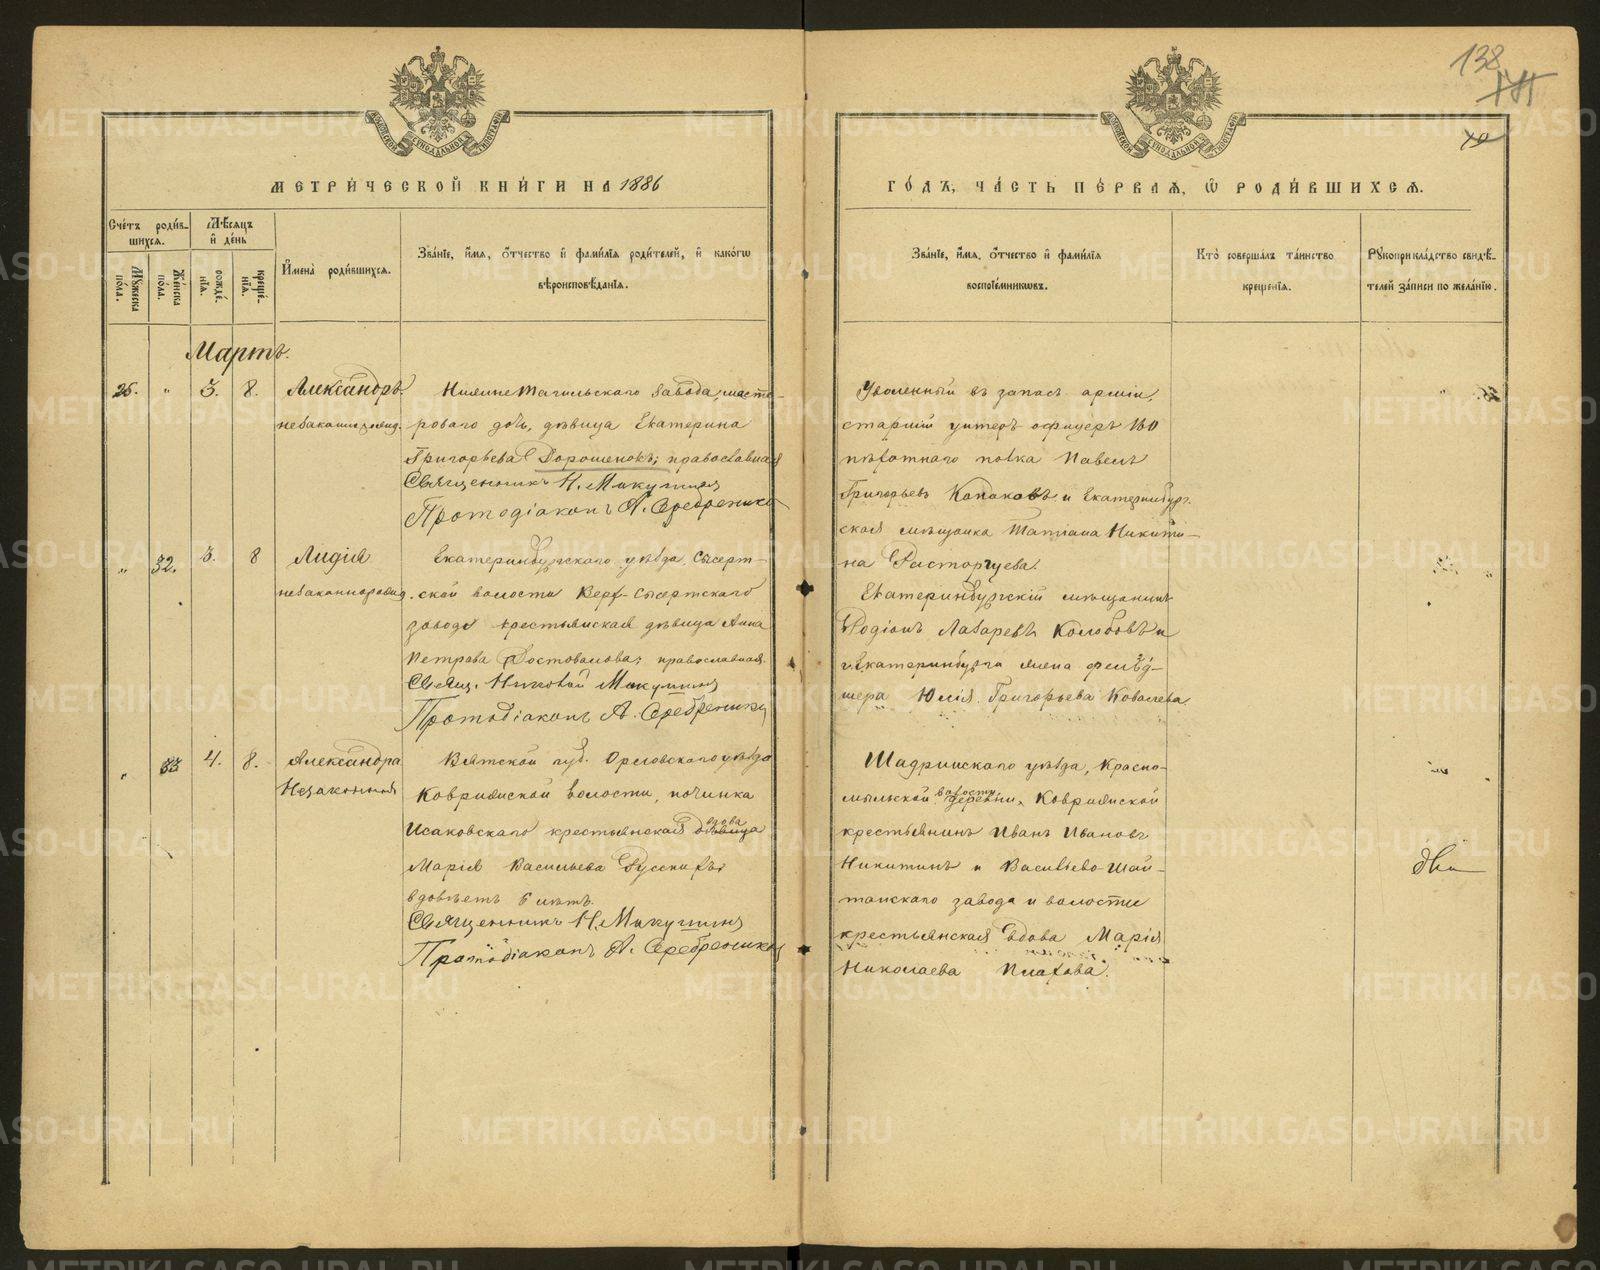 138
МЕТРИ́ЧЕСКОЙ КНИ́ГИ НА 1886
ГО́ДЪ, ЧА́СТЬ ПЕ́РВАЯ, Ѿ РОДИ́ВШИХСЯ.
Сче́тъ роди́в-
шихся.
Мѣ́сяцъ
и҆ де́нь
Му́жеска
по́ла.
Же́нска
по́ла.
рожде́-
нїя.
креще́-
нїя.
И҆мена̀ роди́вшихся.
Зва́нїе, и҆́мя, ѻ҆́тчество и҆ фами́лїя роди́телей, и҆ како́гѡ
вѣроисповѣ́данїя.
Зва́нїе, и҆́мя, ѻ҆́тчество и҆ фами́лїя
воспрїе́мникѡвъ.
Кто̀ соверша́лъ та́инство
креще́нїя.
Рꙋкоприкла́дство свидѣ́-
телей за́писи по жела́нїю.
Мартъ.
26. " 3. 8. Александръ
незаконнорожд.
Нижнетагильскаго завода, масте-
рового дочь, дѣвица Екатерина
Григорьева Дорошенокъ; православная
Священникъ Н. Микушинъ
Протодіаконъ А. Серебренников
Уволенный въ запасъ арміи,
старшій унтеръ-офицеръ 160
пѣхотнаго полка Павелъ
Григорьевъ Копаковъ и Екатеринбург-
ская мѣщанка Татіана Никити-
на Расторгуева.
" 32. 3. 8 Лидія
незаконнорожд.
Екатеринбургскаго уѣзда, Сысерт-
ской волости Верх-Сысертскаго
завода крестьянская дѣвица Анна
Петрова Ростовалова; православная.
Свящ. Николай Микушинъ
Протодіаконъ А. Серебренников
Екатеринбургскій мѣщанинъ
Родіонъ Лазаревъ Колобовъ и
г. Екатеринбурга жена фельд-
шера Юлія Григорьева Ковалева.
" 33 4. 8. Александра
Незаконная
Вятской губ. Орловскаго уѣзда
Ковряжской волости, починка
Исаковскаго крестьянская дѣвица вдова
Марія Васильева Русскихъ
вдовѣетъ 6 лѣтъ.
Священникъ Н. Микушинъ
Протодіаконъ А. Серебренников
Шадринскаго уѣзда, Красно-
мыльской волости деревни, Ковряжской
крестьянинъ Иванъ Ивановъ
Никитинъ и Васильево-Шай-
танскаго завода и волости
крестьянская вдова Марія
Николаева Плахова.